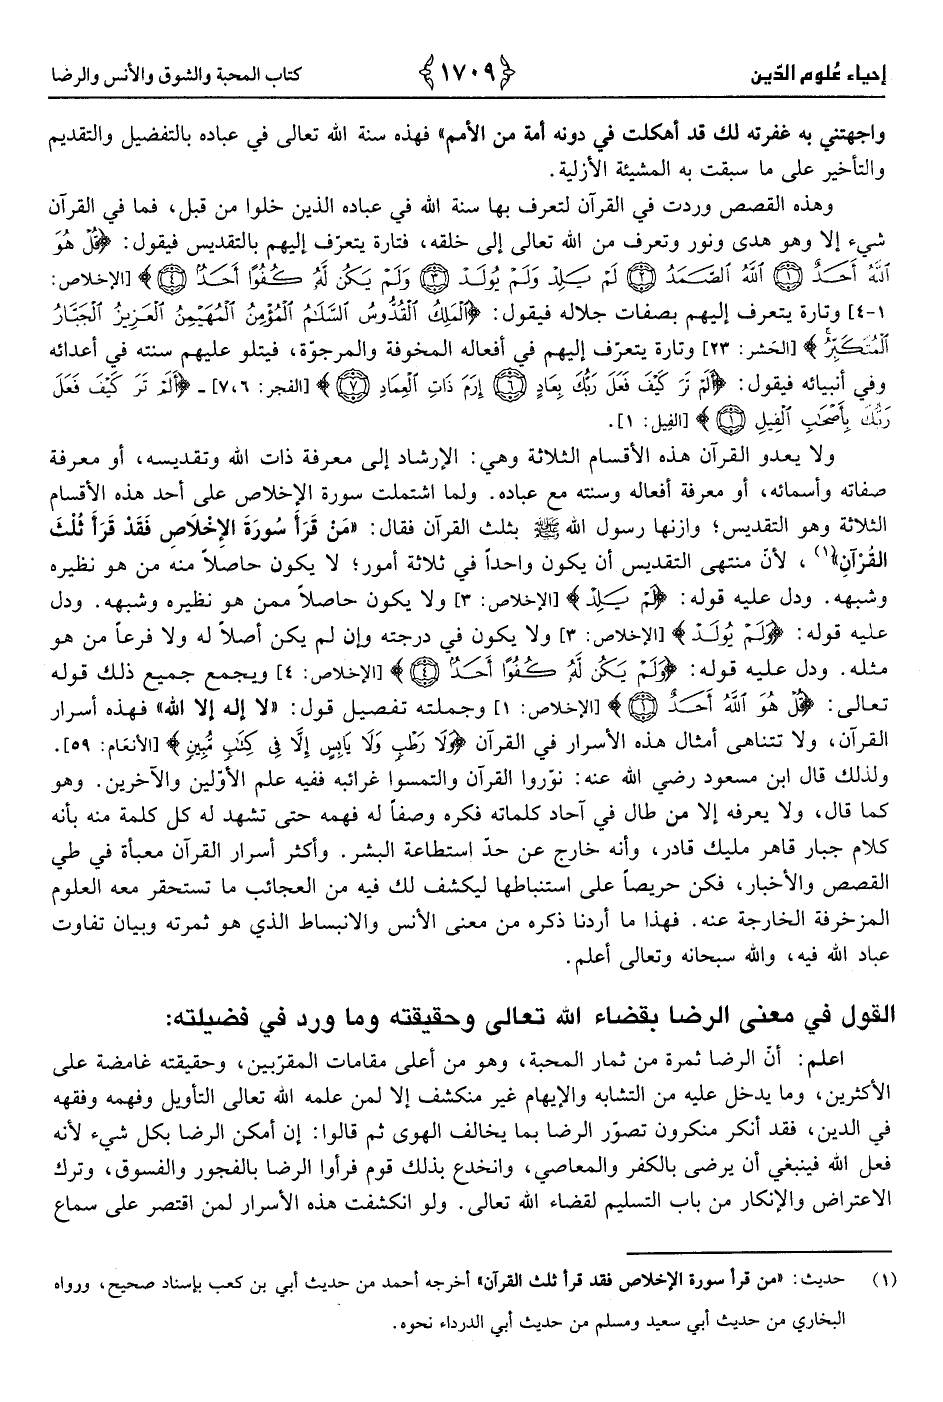 إحياء عُلوم الدّين ﴿١٧٠٩﴾ كتاب المحبة والشوق والأنس والرضا
واجهتني به غفرته لك قد أهكلت في دونه أمة من الأمم» فهذه سنة الله تعالى في عباده بالتفضيل والتقديم
والتأخير على ما سبقت به المشيئة الأزلية.
وهذه القصص وردت في القرآن لتعرف بها سنة الله في عباده الذين خلوا من قبل، فما في القرآن
شيء إلا وهو هدى ونور وتعرف من الله تعالى إلى خلقه، فتارة يتعرّف إليهم بالتقديس فيقول: ﴿قُلْ هُوَ
ٱللَّهُ أَحَدٌ ۝١ ٱللَّهُ ٱلصَّمَدُ ۝٢ لَمْ يَلِدْ وَلَمْ يُولَدْ ۝٣ وَلَمْ يَكُن لَّهُ كُفُوًا أَحَدٌ ۝٤﴾ [الإخلاص:
١-٤] وتارة يتعرف إليهم بصفات جلاله فيقول: ﴿ٱلْمَلِكُ ٱلْقُدُّوسُ ٱلسَّلَٰمُ ٱلْمُؤْمِنُ ٱلْمُهَيْمِنُ ٱلْعَزِيزُ ٱلْجَبَّارُ
ٱلْمُتَكَبِّرُ﴾ [الحَشر: ٢٣] وتارة يتعرّف إليهم في أفعاله المخوفة والمرجوّة، فيتلو عليهم سنته في أعدائه
وفي أنبيائه فيقول: ﴿أَلَمْ تَرَ كَيْفَ فَعَلَ رَبُّكَ بِعَادٍ ۝٦ إِرَمَ ذَاتِ ٱلْعِمَادِ ۝٧﴾ [الفجر: ٧،٦] ـ ﴿أَلَمْ تَرَ كَيْفَ فَعَلَ
رَبُّكَ بِأَصْحَٰبِ ٱلْفِيلِ ۝١﴾ [الفيل: ١].
ولا يعدو القرآن هذه الأقسام الثلاثة وهي: الإرشاد إلى معرفة ذات الله وتقديسه، أو معرفة
صفاته وأسمائه، أو معرفة أفعاله وسنته مع عباده. ولما اشتملت سورة الإخلاص على أحد هذه الأقسام
الثلاثة وهو التقديس؛ وازنها رسول الله ﷺ بثلث القرآن فقال: «مَنْ قَرَأَ سُورَةَ الإِخْلاصِ فَقَدْ قَرَأَ ثُلْثَ
القُرْآنِ»(١)، لأنّ منتهى التقديس أن يكون واحداً في ثلاثة أمور؛ لا يكون حاصلاً منه من هو نظيره
وشبهه. ودل عليه قوله: ﴿لَمْ يَلِدْ﴾ [الإخلاص: ٣] ولا يكون حاصلاً ممن هو نظيره وشبهه. ودل
عليه قوله: ﴿وَلَمْ يُولَدْ﴾ [الإخلاص: ٣] ولا يكون في درجته وإن لم يكن أصلاً له ولا فرعاً من هو
مثله. ودل عليه قوله: ﴿وَلَمْ يَكُن لَّهُ كُفُوًا أَحَدٌ ۝٤﴾ [الإخلاص: ٤] ويجمع جميع ذلك قوله
تعالى: ﴿قُلْ هُوَ ٱللَّهُ أَحَدٌ ۝١﴾ [الإخلاص: ١] وجملته تفصيل قول: «لا إله إلا الله» فهذه أسرار
القرآن، ولا تتناهى أمثال هذه الأسرار في القرآن ﴿وَلَا رَطْبٍ وَلَا يَابِسٍ إِلَّا فِى كِتَٰبٍ مُّبِينٍ﴾ [الأنعَام: ٥٩].
ولذلك قال ابن مسعود رضي الله عنه: نوّروا القرآن والتمسوا غرائبه ففيه علم الأوّلين والآخرين. وهو
كما قال، ولا يعرفه إلا من طال في آحاد كلماته فكره وصفاً له فهمه حتى تشهد له كل كلمة منه بأنه
كلام جبار قاهر مليك قادر، وأنه خارج عن حدّ استطاعة البشر. وأكثر أسرار القرآن معبأة في طي
القصص والأخبار، فكن حريصاً على استنباطها ليكشف لك فيه من العجائب ما تستحقر معه العلوم
المزخرفة الخارجة عنه. فهذا ما أردنا ذكره من معنى الأنس والانبساط الذي هو ثمرته وبيان تفاوت
عباد الله فيه، والله سبحانه وتعالى أعلم.
القول في معنى الرضا بقضاء الله تعالى وحقيقته وما ورد في فضيلته:
اعلم: أنّ الرضا ثمرة من ثمار المحبة، وهو من أعلى مقامات المقرّبين، وحقيقته غامضة على
الأكثرين، وما يدخل عليه من التشابه والإيهام غير منكشف إلا لمن علمه الله تعالى التأويل وفهمه وفقهه
في الدين، فقد أنكر منكرون تصوّر الرضا بما يخالف الهوى ثم قالوا: إن أمكن الرضا بكل شيء لأنه
فعل الله فينبغي أن يرضى بالكفر والمعاصي، وانخدع بذلك قوم فرأوا الرضا بالفجور والفسوق، وترك
الاعتراض والإنكار من باب التسليم لقضاء الله تعالى. ولو انكشفت هذه الأسرار لمن اقتصر على سماع
(١) حديث: «من قرأ سورة الإخلاص فقد قرأ ثلث القرآن» أخرجه أحمد من حديث أبي بن كعب بإسناد صحيح، ورواه
البخاري من حديث أبي سعيد ومسلم من حديث أبي الدرداء نحوه.